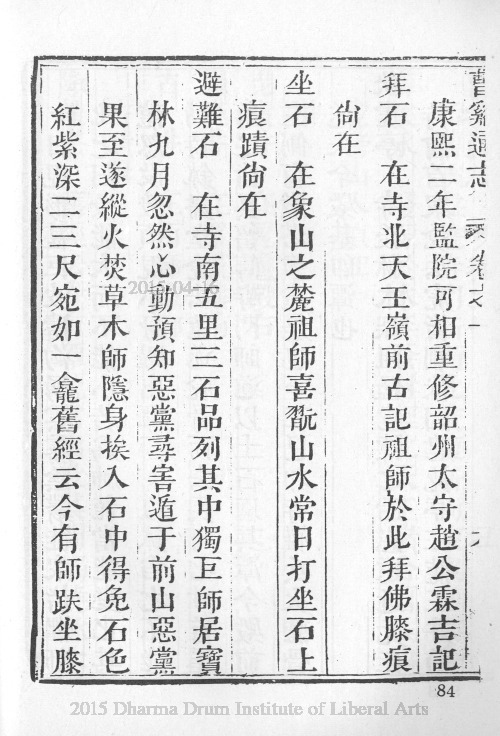 曹溪通志 卷之一
康熙二年監院可相重修韶州太守趙公霖吉記
拜石 在寺北天王嶺前古記祖師於此拜佛膝痕
尙在
坐石 在象山之麓祖師喜翫山水常日打坐石上
痕蹟尙在
避難石 在寺南五里三石品列其中獨巨師居寶
林九月忽然心動預知惡黨尋害遁于前山惡黨
果至遂縱火焚草木師隱身挨入石中得免石色
紅紫深二三尺宛如一龕舊經云今有師趺坐膝
84
2015 Dharma Drum Institute of Liberal Arts